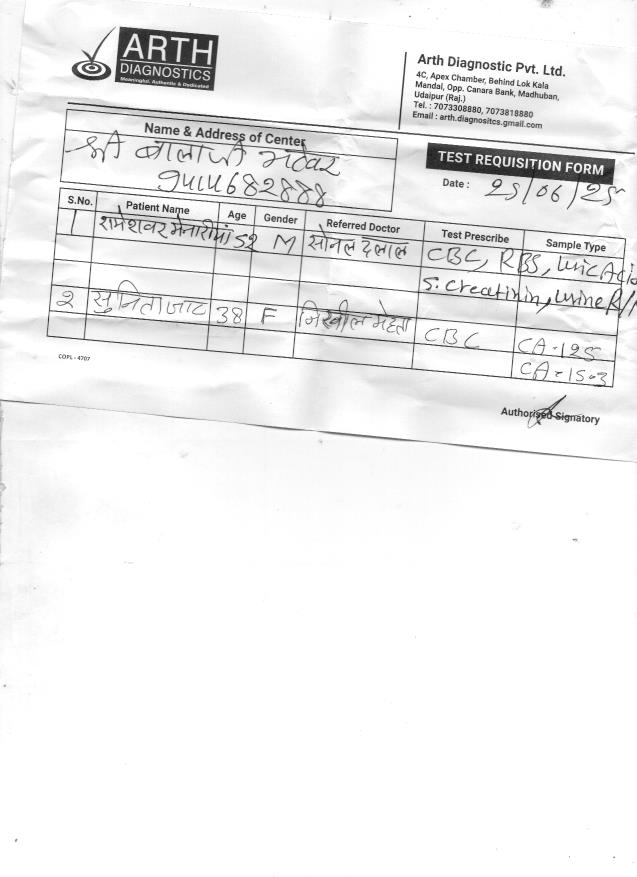 ARTH
DIAGNOSTICS
Meaningful, Authentic & Dedicated
Arth Diagnostic Pvt. Ltd.
4C, Apex Chamber, Behind Lok Kala
Mandal, Opp. Canara Bank, Madhuban,
Udaipur (Raj.)
Tel. : 7073308880, 7073818880
Email : arth.diagnositcs.gmail.com
Name & Address of Center
श्री बालाजी
9414682888
TEST REQUISITION FORM
Date : 25/06/25
S.No. Patient Name Age Gender Referred Doctor Test Prescribe Sample Type
1 रामेश्वर मेनारीया 52 M सोनल दलाल CBC, RBS, Uric Acid
S. Creatinin, Urine R/M
2 सुनिता जाट 38 F निखील मेहता CBC CA-125
CA-15-3
COPL - 4707
Authorised Signatory